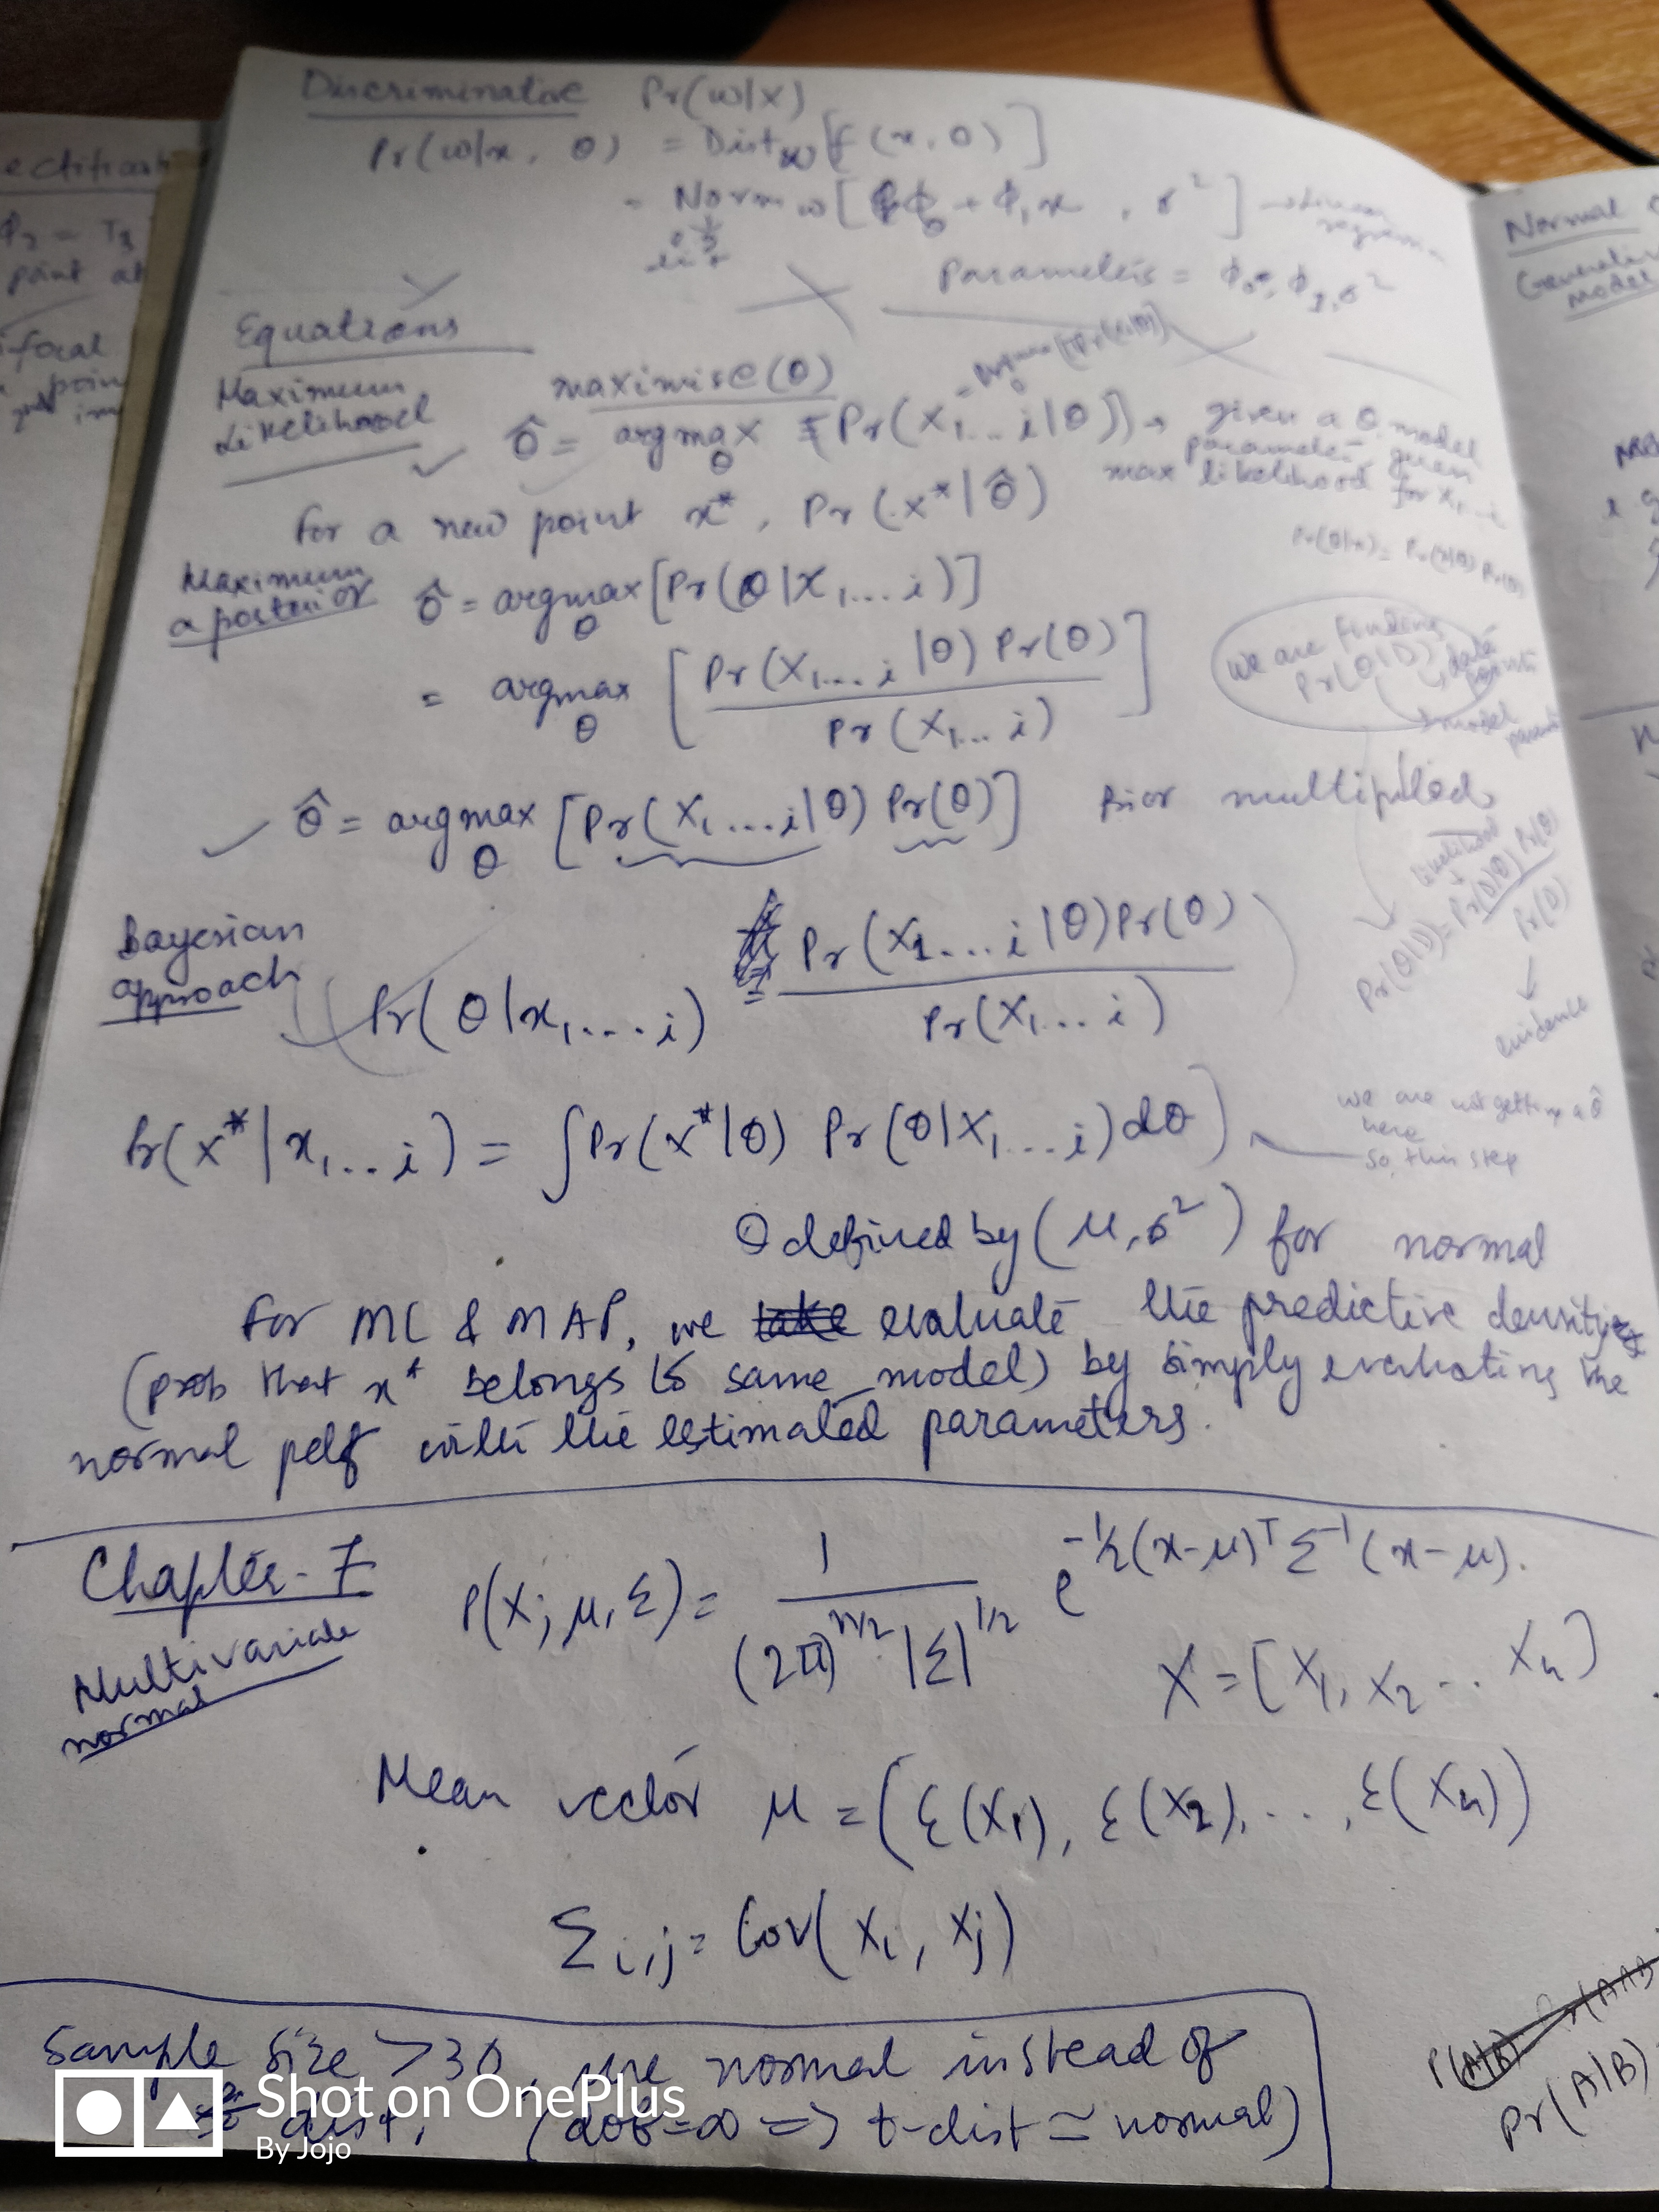 Discriminative Pr(w|x)
Pr(w|x, θ) = Dist_w[f(x, θ)]
= Norm_w[ϕ₀ + ϕ₁x , σ²] → Linear regression
Parameters = ϕ₀, ϕ₁, σ²
Equations
Maximum Likelihood
maximise(θ)
θ̂ = argmax_θ [Pr(x₁...i|θ)] → given a θ, model
parameter, given
max likelihood for x₁...i
for a new point x*, Pr(x*|θ̂)
Pr(θ|x) = Pr(x|θ) Pr(θ)
Maximum a posterior
θ̂ = argmax_θ [Pr(θ|x₁...i)]
= argmax_θ [Pr(x₁...i|θ) Pr(θ) / Pr(x₁...i)]
we are finding
Pr(θ|D), data points
model param
θ̂ = argmax_θ [Pr(x₁...i|θ) Pr(θ)] Prior multiplied
likelihood
Pr(θ|D) = Pr(D|θ) Pr(θ) / Pr(D)
evidence
Bayesian approach
Pr(θ|x₁...i) = Pr(x₁...i|θ)Pr(θ) / Pr(x₁...i)
Pr(x*|x₁...i) = ∫Pr(x*|θ) Pr(θ|x₁...i)dθ
we are not getting a θ̂
here
so, this step
θ defined by (μ, σ²) for normal
For ML & MAP, we take evaluate the predictive density
(prob that x* belongs to same model) by simply evaluating the
normal pdf with the estimated parameters.
Chapter-7
Multivariate normal
P(x; μ, Σ) = 1 / (2π)^(n/2) |Σ|^(1/2) e^(-1/2(x-μ)ᵀ Σ⁻¹(x-μ)).
X = [X₁, X₂ ... Xₙ]
Mean vector μ = (Ɛ(X₁), Ɛ(X₂), ..., Ɛ(Xₙ))
Σi,j = Cov(Xi, Xj)
Sample size >30, use normal instead of
dist, (dof=∞ => t-dist ≃ normal)
Pr(A|B)
Shot on OnePlus
By Jojo
ectification
ϕ₂ = T₃
point at
focal
poin
im
Normal
Generative
model